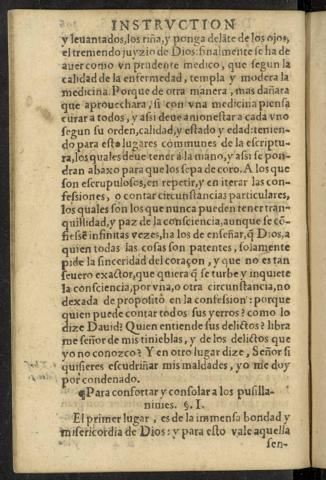 INSTRVCTION
y leuantados, los riña, y ponga deláte de los ojos,
el tremendo juyzio de Dios: finalmente se ha de
auer como vn prudente medico, que segun la
calidad de la enfermedad, templa y modera la
medicina. Porque de otra manera, mas dañara
que aprouechara, si con vna medicina piensa
curar a todos, y assi deue anionestar a cada vno
segun su orden, calidad, y estado y edad: tenien-
do para esto lugares communes de la escriptu-
ra, los quales deue tener a la mano, y assi se pon-
dran abaxo para que los sepa de coro. A los que
son escrupulosos, en repetir, y en iterar las con-
fessiones, o contar circunstancias particulares,
los quales son los que nunca pueden tener tran-
quillidad, y paz de la consciencia, aunque se cõ-
fiessẽ infinitas vezes, ha los de enseñar, q̃ Dios, a
quien todas las cosas son patentes, solamente
pide la sinceridad del coraçon, y que no es tan
seuero exactor, que quiera q̃ se turbe y inquiete
la consciencia, por vna, o otra circunstancia, no
dexada de proposito en la confession: porque
quien puede contar todos sus yerros? como lo
dize Dauid? Quien entiende sus delictos? libra
me señor de mis tinieblas, y de los delictos que
yo no conozco? Y en otro lugar dize, Señor si
quisieres escudriñar mis maldades, yo me doy
por condenado.
¶Para confortar y consolar a los pusilla-
nimes. §. I.
El primer lugar, es de la immensa bondad y
misericordia de Dios: y para esto vale aquella
sen-